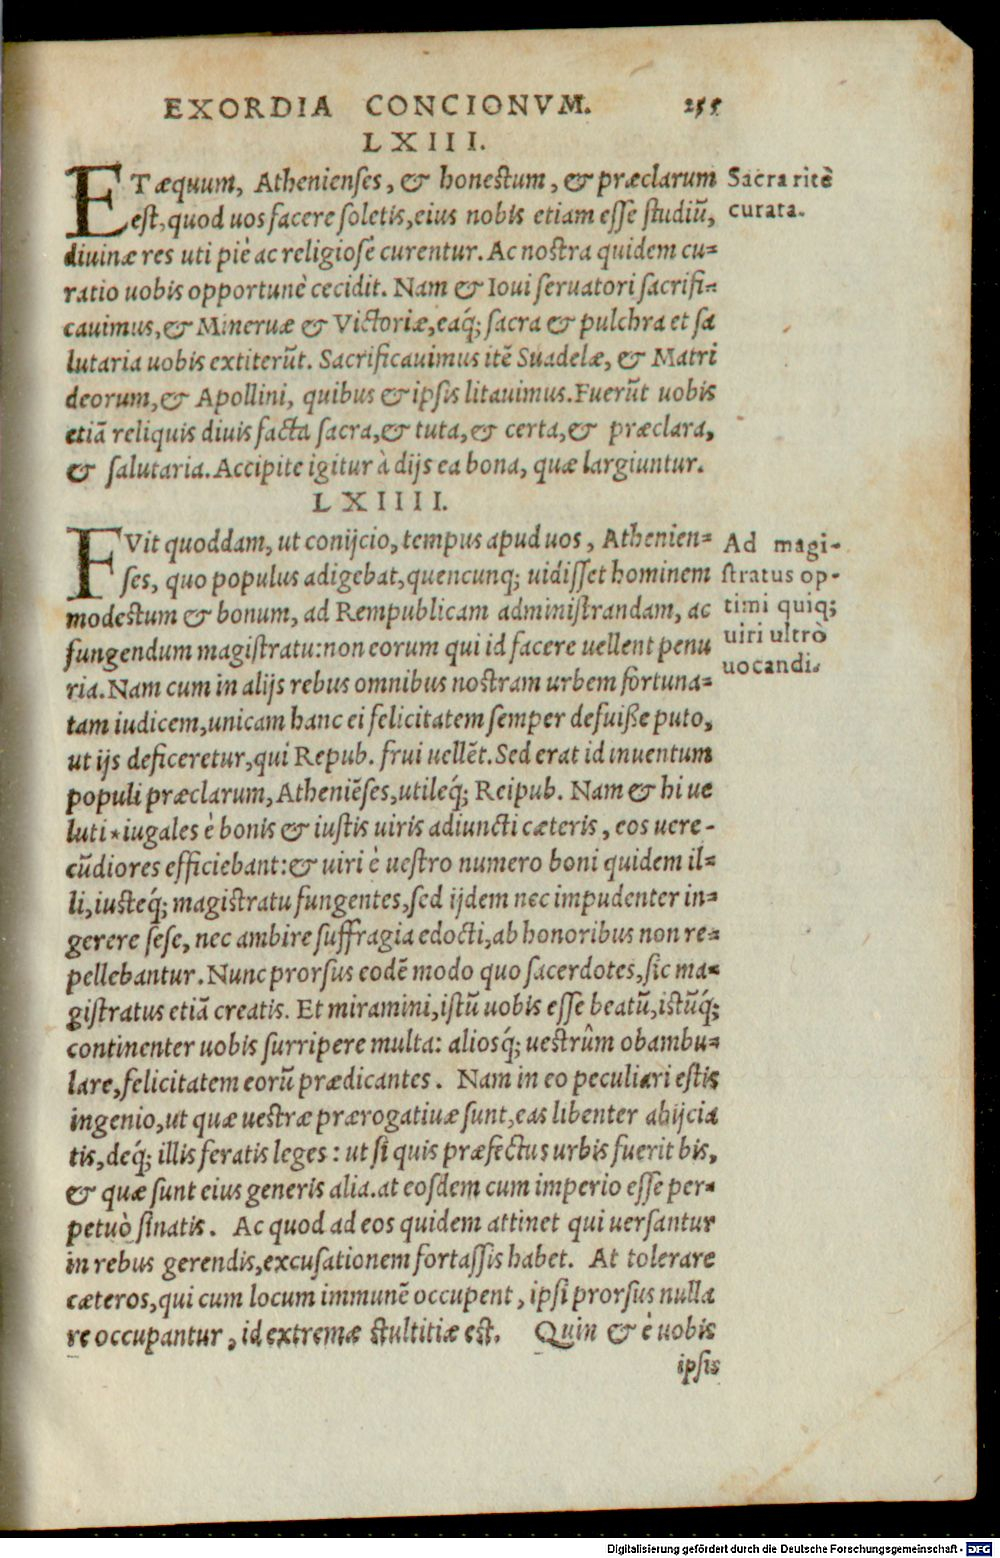 EXORDIA CONCIONVM. 255
LXIII.
ET æquum, Athenienses, & honestum, & præclarum
est, quod uos facere soletis, eius nobis etiam esse studiũ,
diuinæ res uti piè ac religiosè curentur. Ac nostra quidem cu=
ratio uobis opportunè cecidit. Nam & Ioui seruatori sacrifi=
cauimus, & Mineruæ & Victoriæ, eaq́; sacra & pulchra et sa
lutaria uobis extiterũt. Sacrificauimus itẽ Suadelæ, & Matri
deorum, & Apollini, quibus & ipsis litauimus. Fuerũt uobis
etiã reliquis diuis facta sacra, & tuta, & certa, & præclara,
& salutaria. Accipite igitur à dijs ea bona, quæ largiuntur.
Sacra ritè
curata.
LXIIII.
FVit quoddam, ut conijcio, tempus apud uos, Athenien=
ses, quo populus adigebat, quencunq; uidisset hominem
modestum & bonum, ad Rempublicam administrandam, ac
fungendum magistratu: non eorum qui id facere uellent penu
ria. Nam cum in alijs rebus omnibus nostram urbem fortuna=
tam iudicem, unicam hanc ei felicitatem semper defuiße puto,
ut ijs deficeretur, qui Repub. frui uellẽt. Sed erat id inuentum
populi præclarum, Atheniẽses, utileq́; Reipub. Nam & hi ue
luti * iugales è bonis & iustis uiris adiuncti cæteris, eos uere-
cũdiores efficiebant: & uiri è uestro numero boni quidem il=
li, iusteq́; magistratu fungentes, sed ijdem nec impudenter in=
gerere sese, nec ambire suffragia edocti, ab honoribus non re=
pellebantur. Nunc prorsus eodẽ modo quo sacerdotes, sic ma=
gistratus etiã creatis. Et miramini, istũ uobis esse beatũ, istũq́;
continenter uobis surripere multa: aliosq́; uestrûm obambu=
lare, felicitatem eorũ prædicantes. Nam in eo peculiari estis
ingenio, ut quæ uestræ prærogatiuæ sunt, eas libenter abijcia
tis, deq́; illis feratis leges: ut si quis præfectus urbis fuerit bis,
& quæ sunt eius generis alia. at eosdem cum imperio esse per=
petuò sinatis. Ac quod ad eos quidem attinet qui uersantur
in rebus gerendis, excusationem fortassis habet. At tolerare
cæteros, qui cum locum immunẽ occupent, ipsi prorsus nulla
re occupantur, id extremæ stultitiæ est. Quin & è uobis
ipsis
Ad magi-
stratus op-
timi quiq;
uiri ultrò
uocandi.
Digitalisierung gefördert durch die Deutsche Forschungsgemeinschaft - DFG